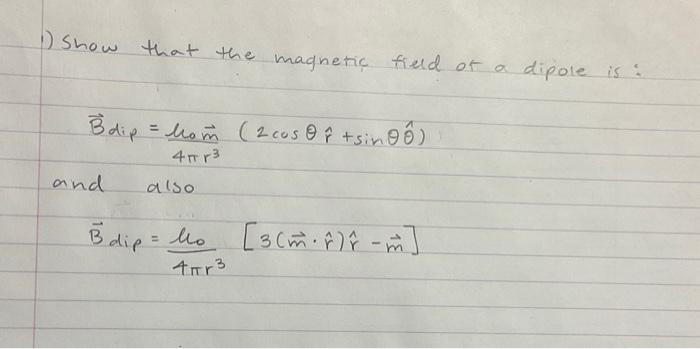 1) Show that the magnetic field of a dipole is :
B⃗ dip = μ₀ m⃗ / 4πr³ (2cosθ r̂ + sinθ θ̂)
and also
B⃗ dip = μ₀ / 4πr³ [3(m⃗ · r̂) r̂ - m⃗]